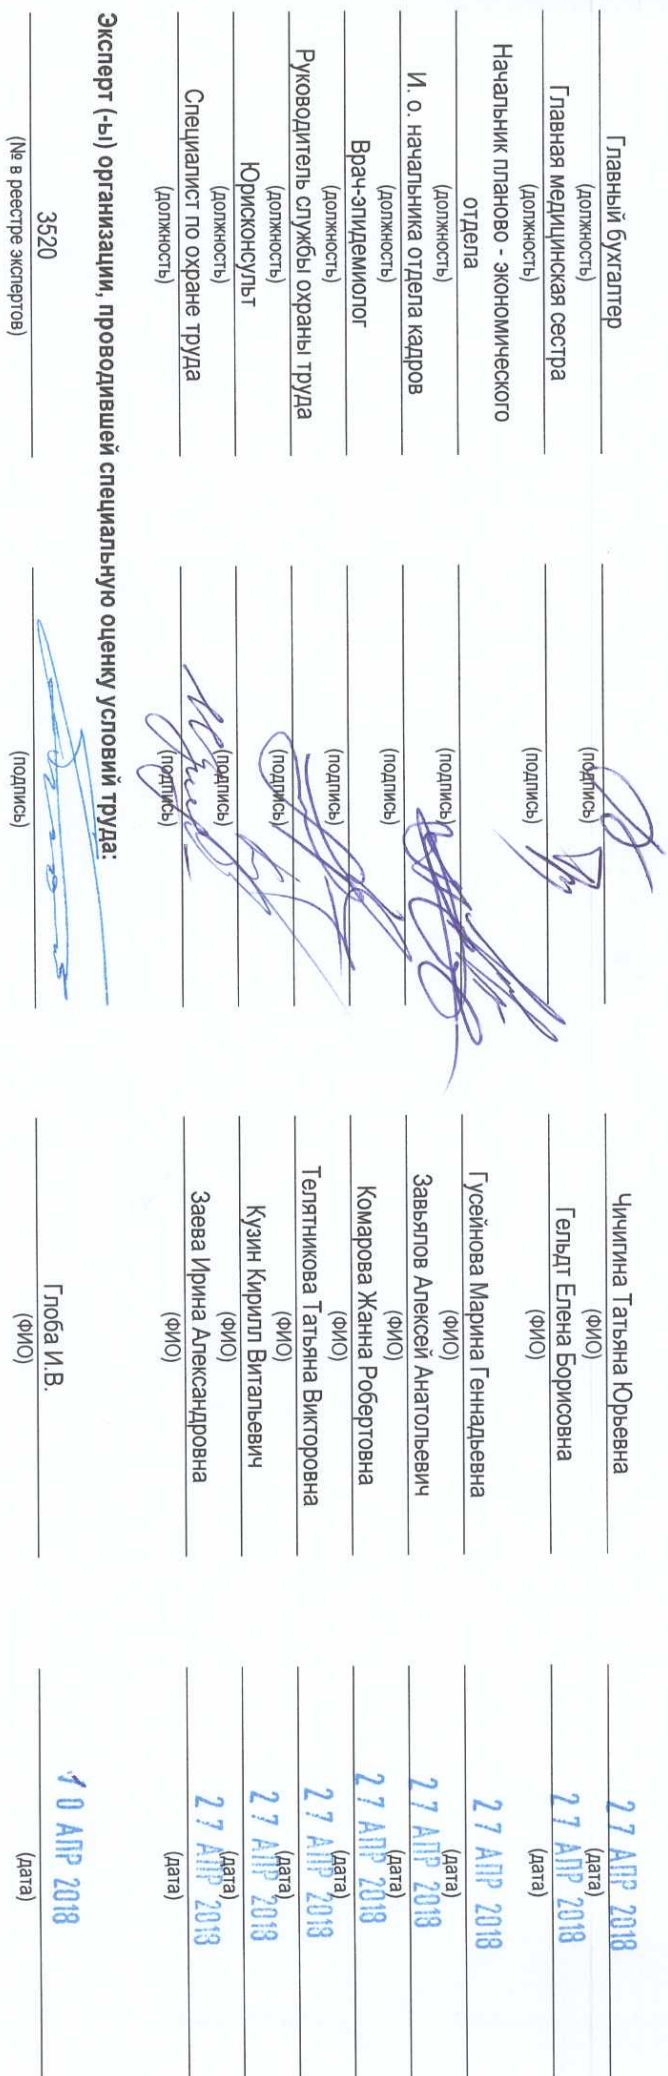 Главный бухгалтер Чичигина Татьяна Юрьевна 27 АПР 2018
(должность) (подпись) (ФИО) (дата)
Главная медицинская сестра Гельдт Елена Борисовна 27 АПР 2018
(должность) (подпись) (ФИО) (дата)
Начальник планово - экономического
отдела Гусейнова Марина Геннадьевна 27 АПР 2018
(должность) (подпись) (ФИО) (дата)
И. о. начальника отдела кадров Завьялов Алексей Анатольевич 27 АПР 2018
(должность) (подпись) (ФИО) (дата)
Врач-эпидемиолог Комарова Жанна Робертовна 27 АПР 2018
(должность) (подпись) (ФИО) (дата)
Руководитель службы охраны труда Телятникова Татьяна Викторовна 27 АПР 2018
(должность) (подпись) (ФИО) (дата)
Юрисконсульт Кузин Кирилл Витальевич 27 АПР 2018
(должность) (подпись) (ФИО) (дата)
Специалист по охране труда Заева Ирина Александровна 27 АПР 2018
(должность) (подпись) (ФИО) (дата)
Эксперт (-ы) организации, проводившей специальную оценку условий труда:
3520 Глоба И.В. АПР 2018
(№ в реестре экспертов) (подпись) (ФИО) (дата)